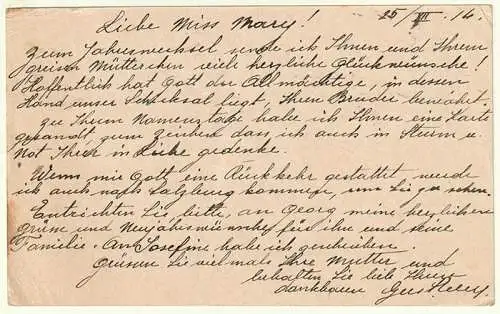 Liebe Miss Mary! 25/XII. 16.
Zum Jahreswechsel sende ich Ihnen und Ihrem
greisen Mütterchen viele herzliche Glückwünsche!
Hoffentlich hat Gott der Allmächtige, in dessen
Hand unser Schicksal liegt, Ihren Bruder bewahrt.
Zu Ihrem Namenstage habe ich Ihnen eine Karte
gesandt zum Zeichen dass, ich auch in Sturm u.
Not Ihrer in Liebe gedenke.
Wenn mir Gott eine Rückkehr gestattet, werde
ich auch nach Salzburg kommen, um Sie zu sehen.
Entrichten Sie, bitte, an Georg meine herzlichen
grüsse und Neujahrswünsche für ihn und seine
Familie. An Josefine habe ich geschrieben.
Grüssen Sie vielmals Ihre Mutter und
behalten Sie lieb Ihren
dankbaren